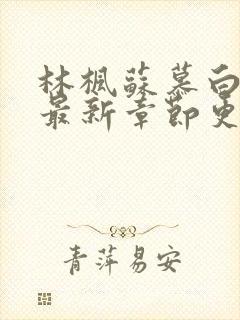 林楓蘇慕白
最新章節更
青萍易安